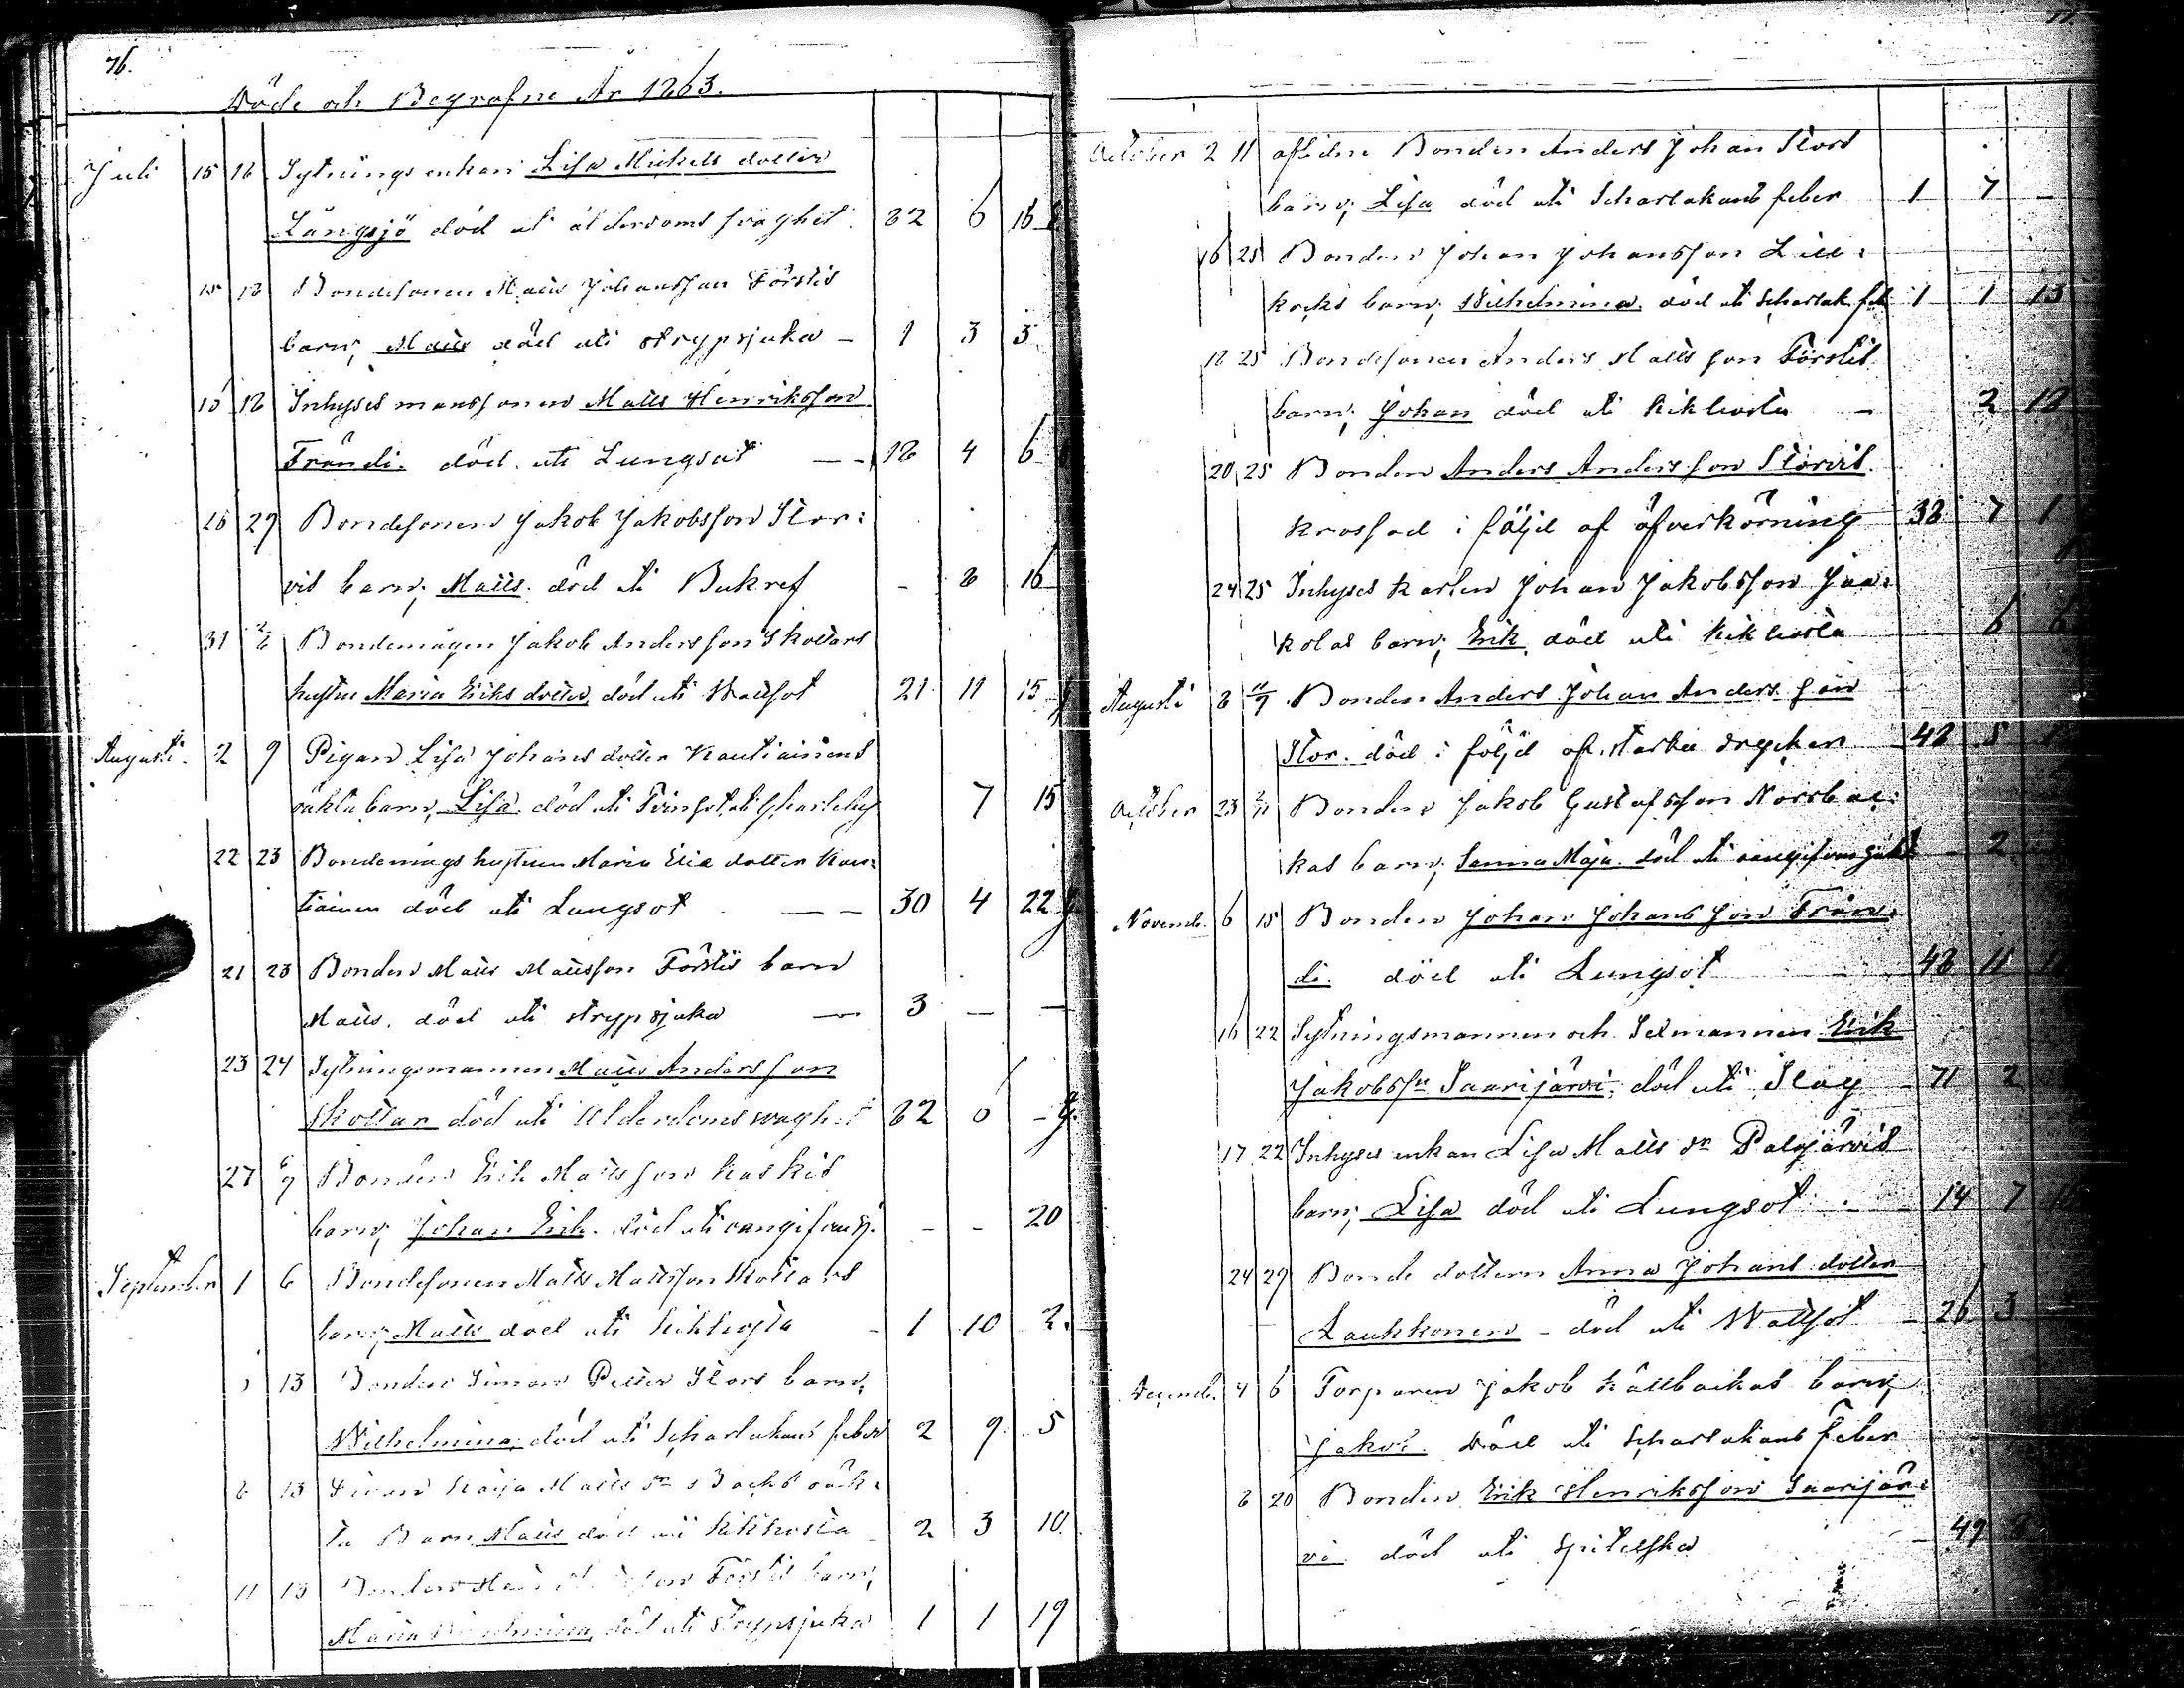 76.
Döde och Begrafne År 1863.
Juli 15 18 Sytnings enkan Lisa Michels dotter
Långsjö död ut ålderdoms svaghet 82 6 16
15 18 Bondesonen Matts Johansson Förstis
barn; Matts död uti strypsjuka – 1 3 3
15 18 Inhyses manssonen Matts Henriksson
Fröndi. död uti Lungsot — 18 4 6
26 29 Bondesonen Jakob Jakobsson Stor:
vis barn; Matts. död uti Bukref - 8 16
31 2/8 Bondemågen Jakob Andersson Skottars
hustru Maria Eriks dotter, död uti Wattsot 21 11 15
Augusti. 2 9 Pigan Lisa Johans dotter Kautiainens
oäkta barn, Lisa. död uti 7 15
22 23 Bondemågs hustrun Maria Elia dotter Kau:
tiainen död uti Lungsot — 30 4 22
21 23 Bonden Matts Mattsson Förstis barn
Matts. död uti strypsjuka — 3 — —
23 24 Sytningsmannen Matts Andersson
Skottar död uti Alderdoms svaghet 82 6 -
27 6/9 Bonden Erik Mattsson Kaskis
barn; Johan Erik. död uti - - 20
September 1 6 Bondesonen Matts Mattsson Skottars
barn; Matts död uti kikhosta 1 10 2.
13 Bonden Simon Petter Stors barn,
Wilhelmina; död uti Scharlakans feber 2 9. 5
8 13 Pigan Kajsa Matts dr Backs oäk:
ta Barn Matts död uti kikhosta 2 3 10.
11 13 Bonden Förstis barn;
Maria Wilhelmina, död uti Strypsjuka 1 1 19
October 2 11 aflidne Bonden Anders Johan Stors
barn; Lisa död uti Scharlakans feber 1 7 –
16 25 Bonden Johan Johansson Lill:
kocks barn; Wilhelmina. död uti Scharlak. feb 1 1 13
18 25 Bondesonen Anders Matts son Förstis
barn; Johan död uti kikhosta – 2 18
20 25 Bonden Anders Andersson Storvis
krossad i följd af öfverkörning 38 7 1
24 25 Inhyses karlen Johan Jakobsson Jaa:
kolas barn; Erik, död uti kikhosta 6 6
Augusti 8 11/9 Bonden Anders Johan Anders son
Stor. död i följd af starka drycker 48 5
October 23 2/11 Bonden Jakob Gustafsson Norrbac:
kas barn; Sanna Maja. död uti 2
Novemb. 6 15 Bonden Johan Johansson Frön:
di. död uti Lungsot 48 11
16 22 Sytningsmannen och Sexmannen Erik
Jakobssn Saarijärvi; död uti Slag 71 2
17 22 Inhyses enkan Lisa Matts dr Palojärvis
barn; Lisa död uti Lungsot 14 7
24 29 Bonde dottern Anna Johans dotter
Laukkonen – död uti Wattsot 26 3
Decemb. 4 6 Torparen Jakob Källbackas barn;
Jakob. död uti Scharlakans feber
8 20 Bonden Erik Henriksson Saarijär:
vi. död uti Spitelska 49 8